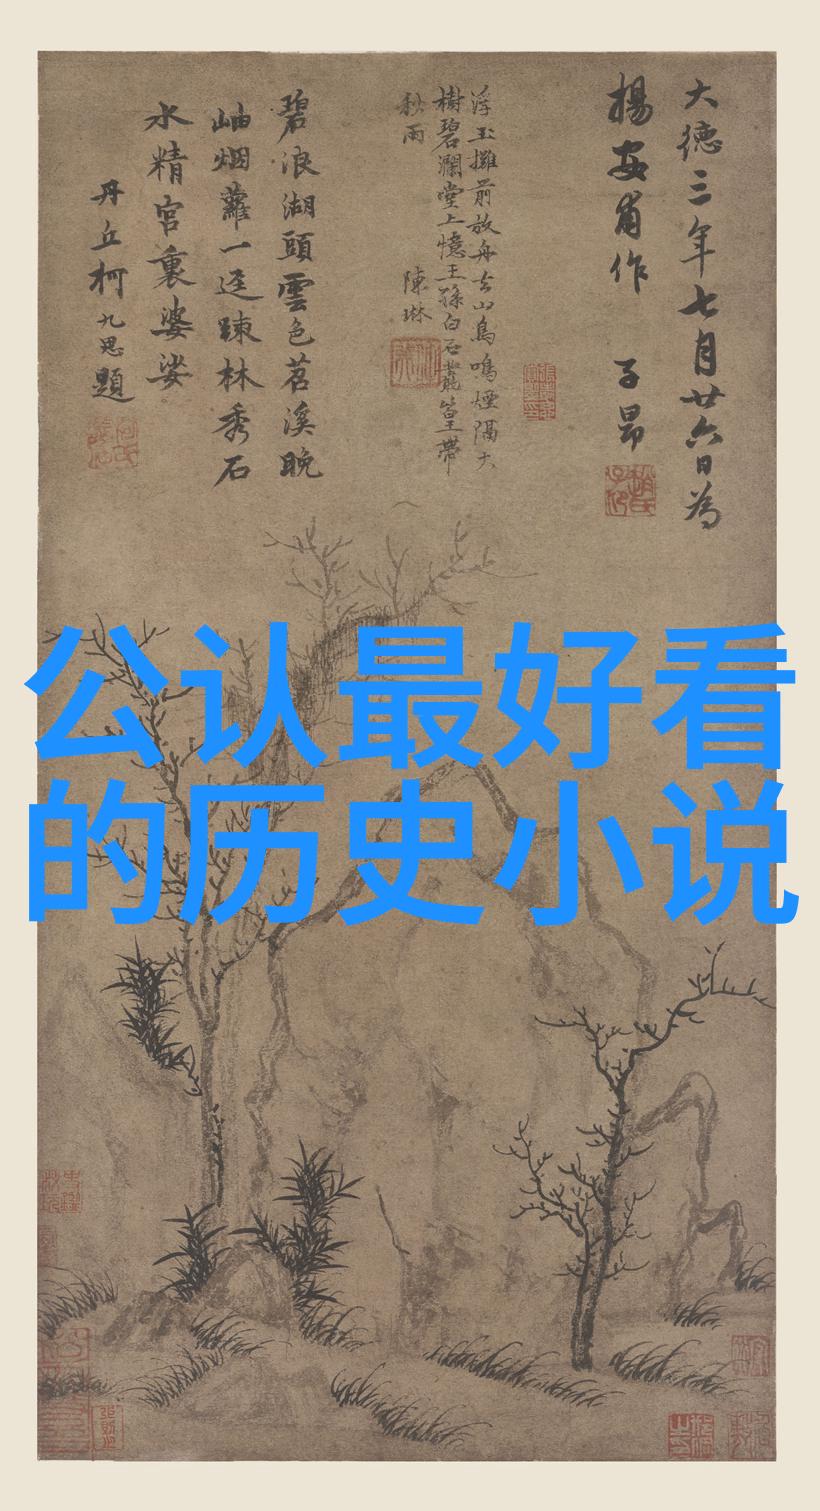 大德三年七月廿六日為
楊安甫作　子昂
浮玉攤前放舟去山鳥鳴煙隔大
樹碧瀾堂上憶王孫白石叢篁帶
秋雨　陳琳
碧浪湖頭雲色茗溪晚
岫烟蘿一逕踈林秀石
水精宮裏婆娑
丹丘柯九思題
公认最好看
的历史小说